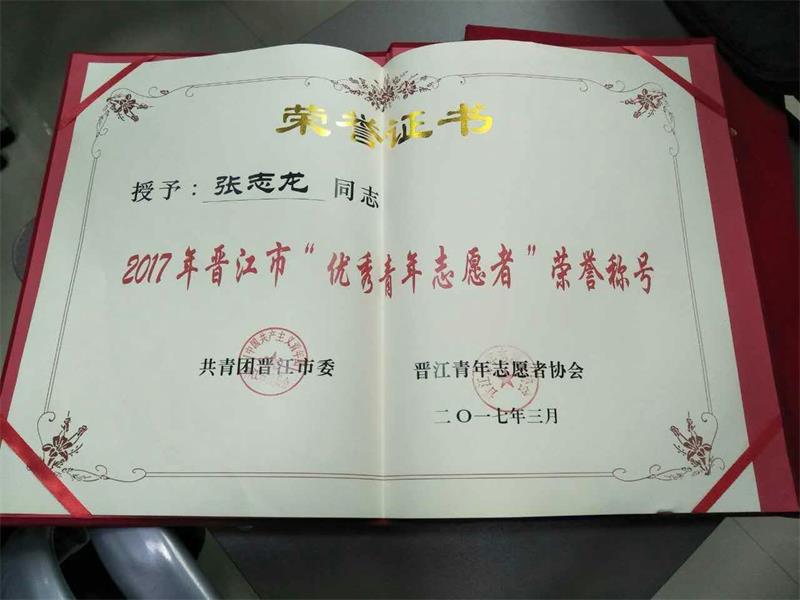 荣誉证书
授予：张志龙 同志
2017年晋江市“优秀青年志愿者”荣誉称号
共青团晋江市委 晋江青年志愿者协会
二〇一七年三月